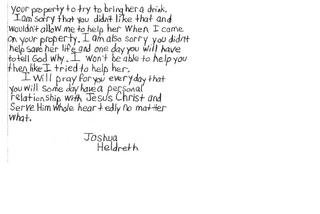 your property to try to bring her a drink.
I am sorry that you didn't like that and
wouldn't allow me to help her when I came
on your property. I am also sorry you didn't
help save her life and one day you will have
to tell God why. I won't be able to help you
then like I tried to help her.
I will pray for you everyday that
you will some day have a personal
relationship with Jesus Christ and
Serve Him whole heartedly no matter
what.
Joshua
Heldreth